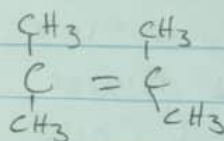 CH3 CH3
C = C
CH3 CH3